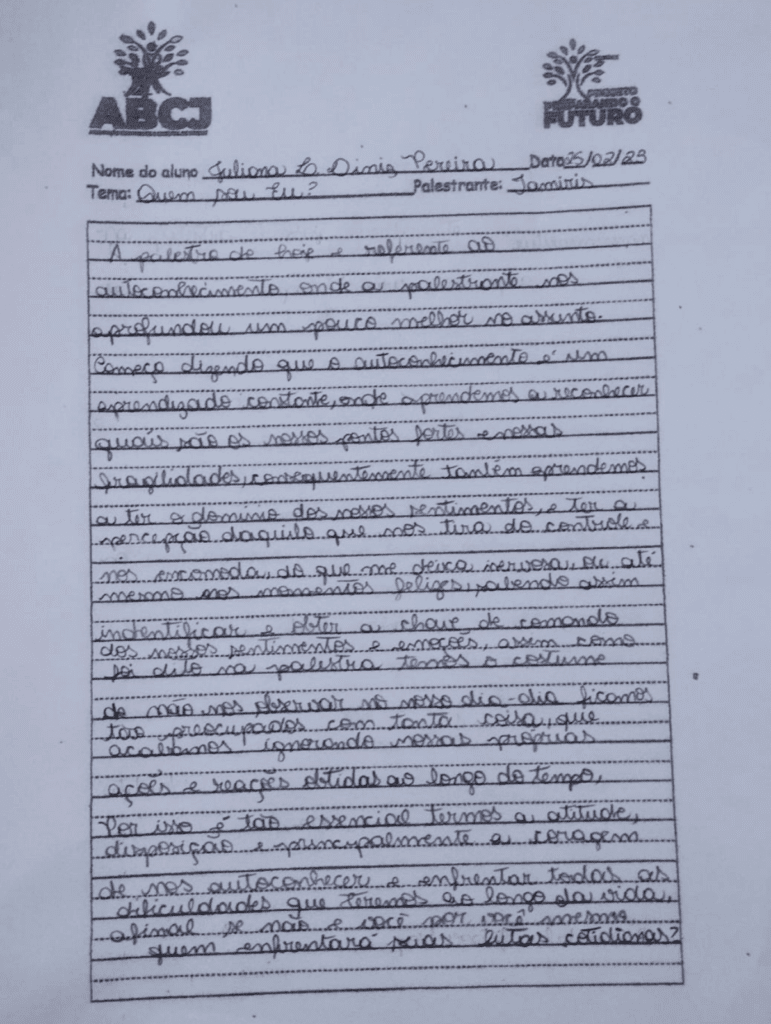 ABCJ
PROJETO
PREPARANDO O
FUTURO
Nome do aluno Juliana L. Diniz Pereira Data 25/02/23
Tema: Quem sou Eu? Palestrante: Jamiris
A palestra de hoje e referente ao
autoconhecimento, onde a palestrante nos
aprofundou um pouco melhor no assunto.
Começo dizendo que o autoconhecimento é um
aprendizado constante, onde aprendemos a reconhecer
quais são os nossos pontos fortes e nossas
fragilidades, consequentemente também aprendemos
a ter o dominio dos nossos sentimentos, e ter a
percepção daquilo que nos tira do controle e
nos encomoda, do que me deixa nervosa, ou até
mesmo nos momentos felizes, sabendo assim
indentificar e obter a chave de comando
dos nossos sentimentos e emoções, assim como
foi dito na palestra temos o costume
de não nos observar no nosso dia-dia ficamos
tão preocupados com tanta coisa, que
acabamos ignorando nossas próprias
ações e reações obtidas ao longo do tempo,
Por isso é tão essencial termos a atitude,
disposição e principalmente a coragem
de nos autoconhecer e enfrentar todas as
dificuldades que teremos ao longo da vida,
afinal se não e você por você mesmo
quem enfrentará suas lutas cotidianas?